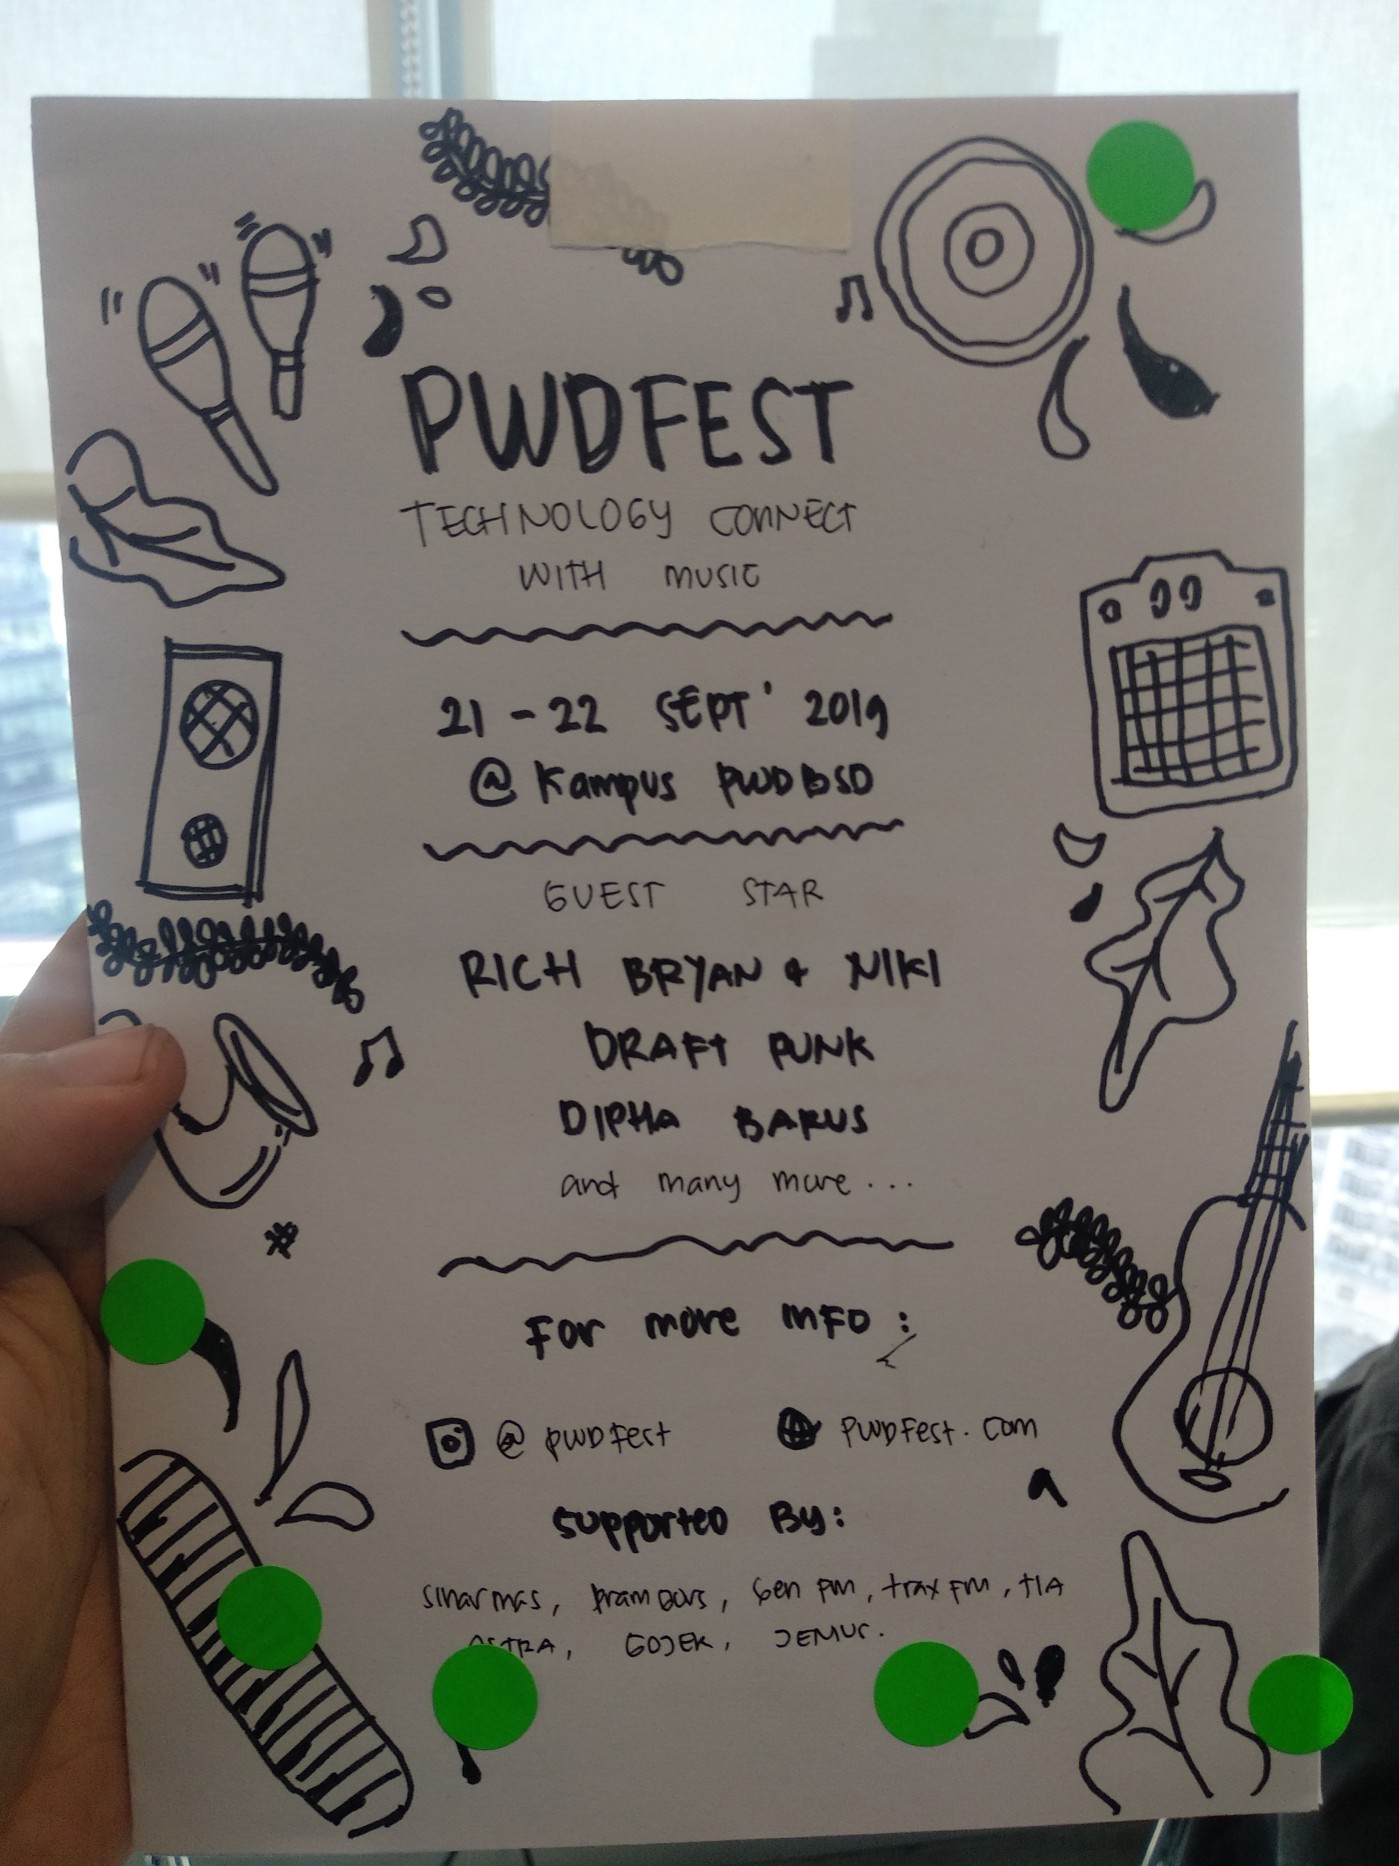 PWDFEST
TECHNOLOGY CONNECT
WITH MUSIC
21-22 SEPT' 2019
@ Kampus PWDBSD
GUEST STAR
RICH BRYAN & NIKI
DRAFT PUNK
DIPHA BARUS
and many more...
For more INFO :
@pwdfest
PWDFest.com
supported By:
sinarmas, prambors, Gen FM, trax FM, TIA
ASTRA, GOJEK,